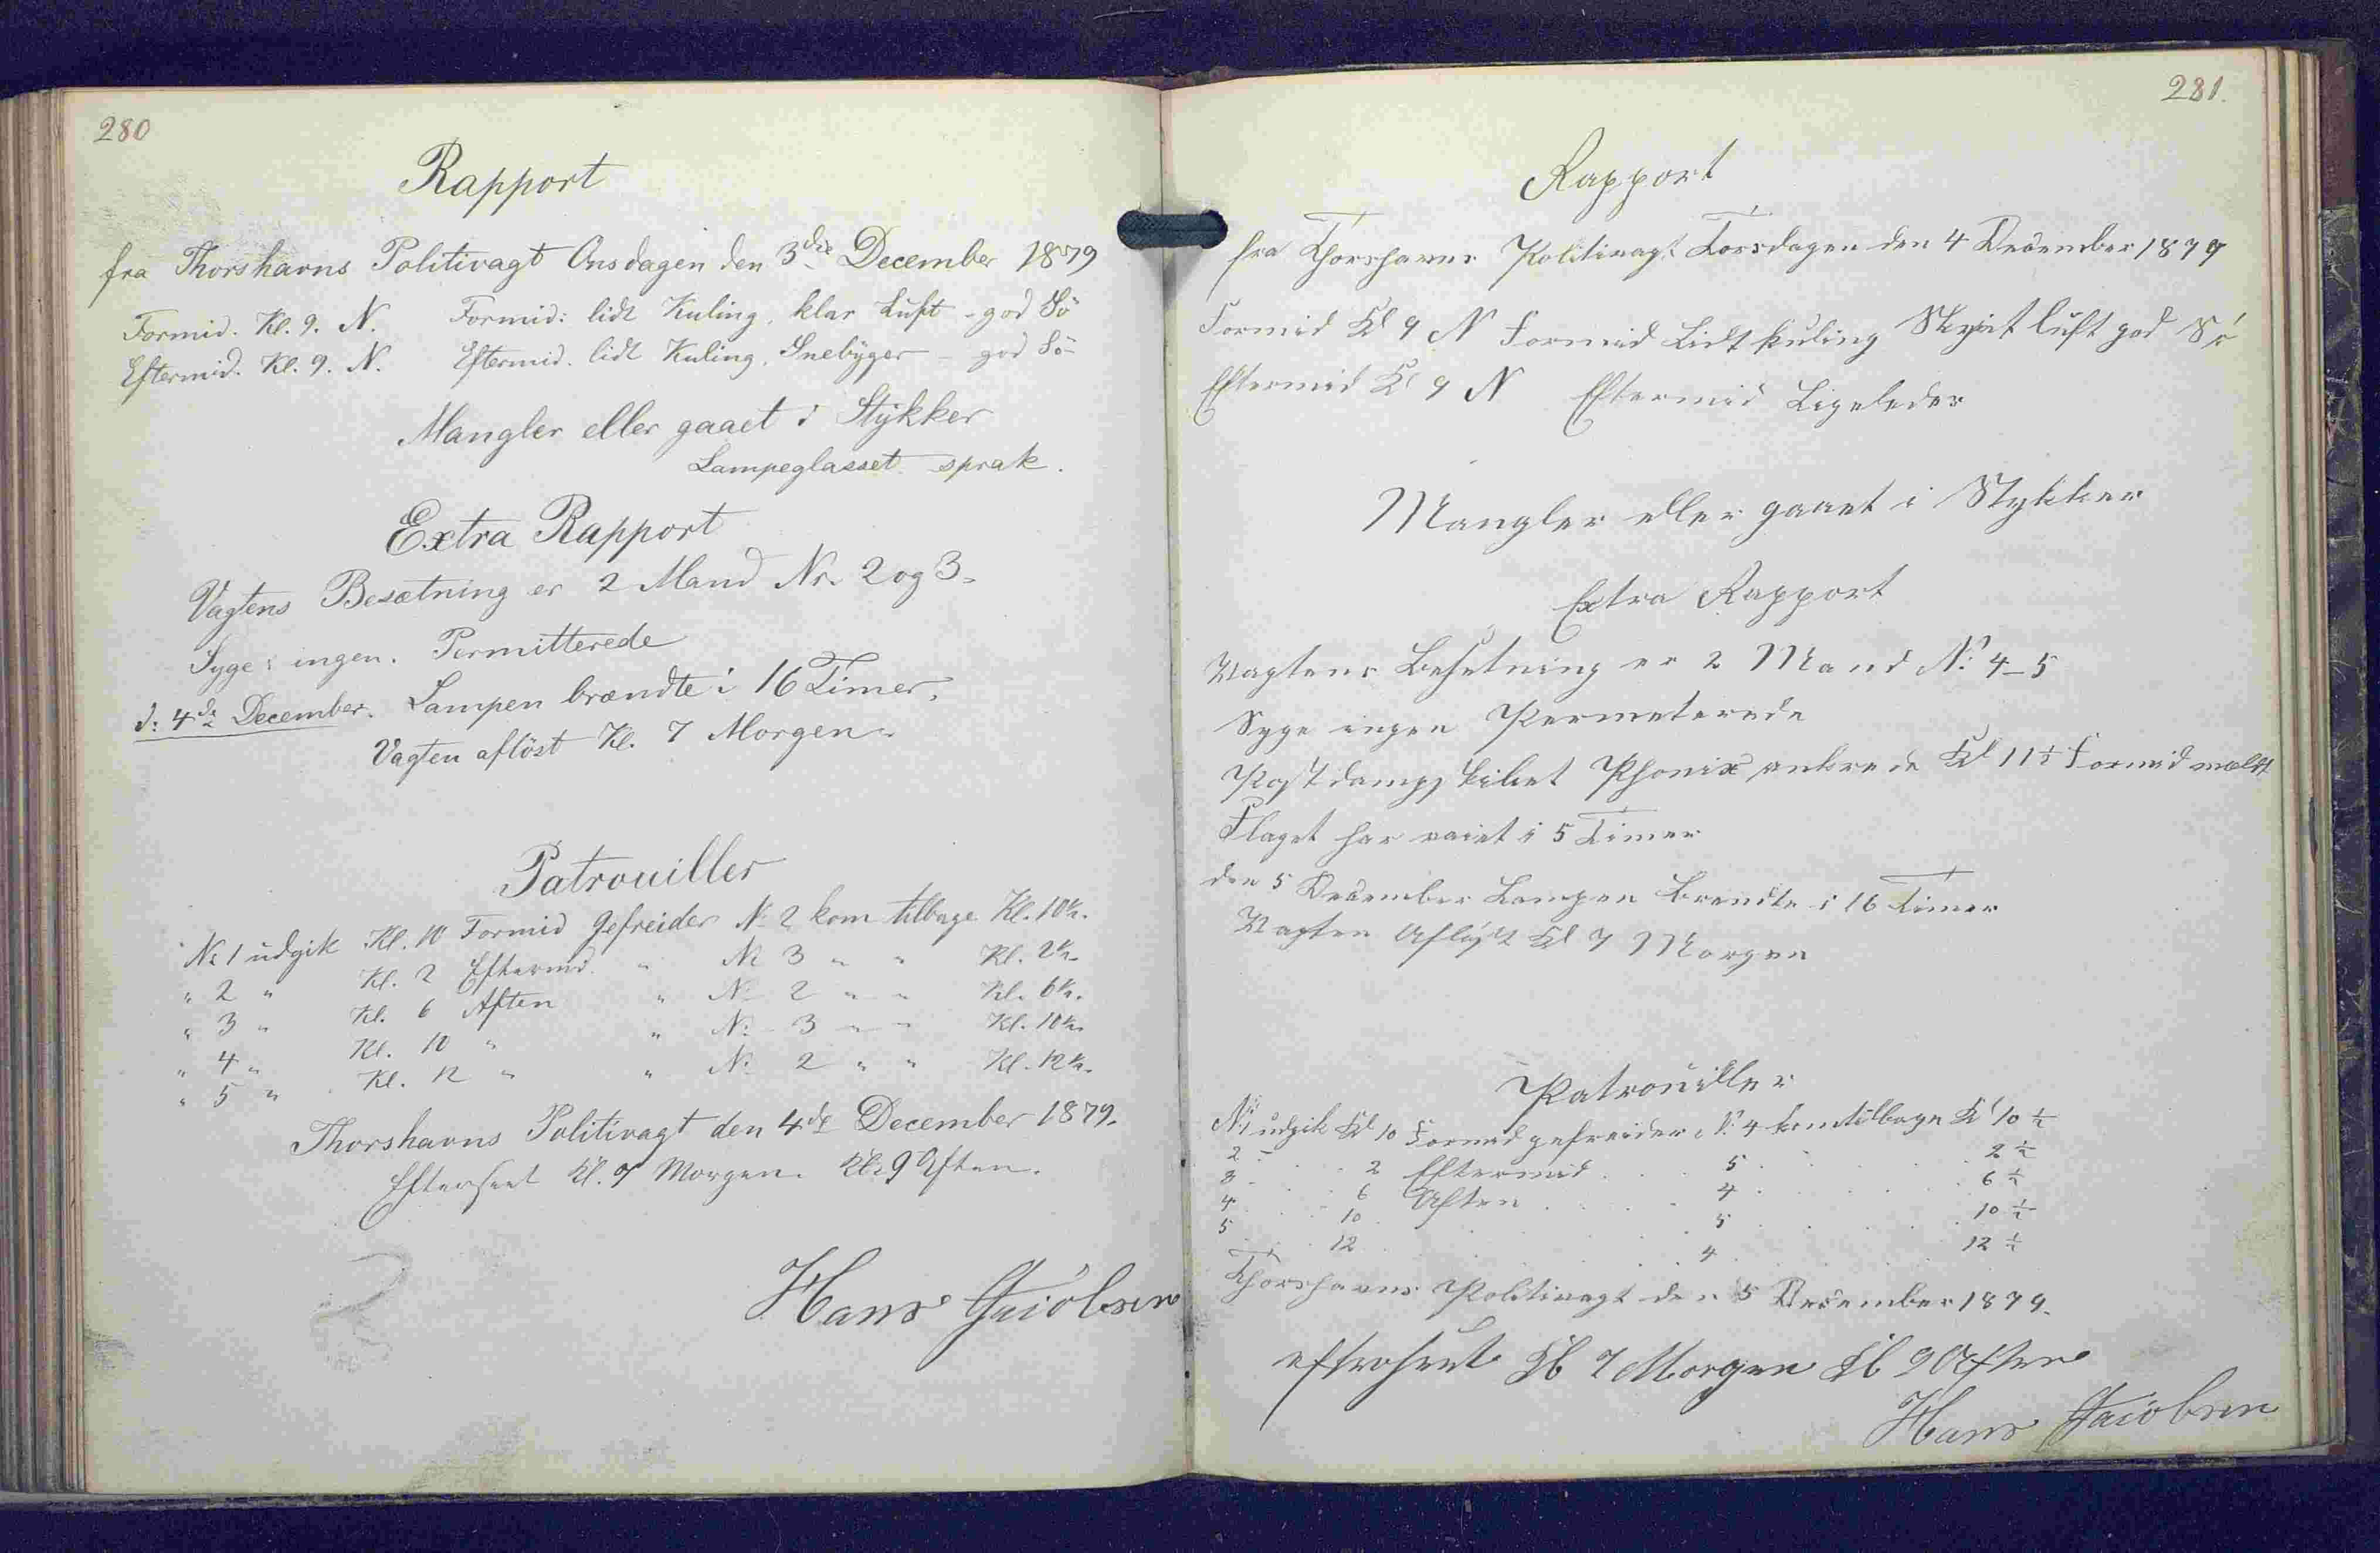 280
Rapport
fra Thorshavns Politivagt Onsdagen den 3die December 1879
Formid. Kl. 9. N. Formid: lidt Kuling, klar Luft - god Sö
Eftermid. Kl. 9. N. Eftermid. lidt Kuling, Snebyger - god Sö
Mangler eller gaaet i Stykker
Lampeglasset sprak.
Extra Rapport
Vagtens Besætning er 2 Mand Nr. 2 og 3.
Syge: ingen. Permitterede
d: 4de December. Lampen brændte i 16 Timer.
Vagten aflöst Kl. 7 Morgen.
Patrouiller
No 1 udgik Kl. 10 Formid Gefreider No 2 kom tilbage Kl. 10½.
" 2 " Kl. 2 Eftermd. " No 3 " " Kl. 2½
" 3 " Kl. 6 Aften " No 2 " " Kl. 6½.
" 4 " Kl. 10 " " No 3 " " Kl. 10½.
" 5 " Kl. 12 " " No 2 " " Kl. 12½.
Thorshavns Politivagt den 4de December 1879.
Efterseet Kl. 7 Morgen. Kl. 9 Aften.
Hans Jacobsen
281.
Rapport
fra Thorshavns Politivagt Torsdagen den 4 December 1879
Formid Kl 9 N Formid Lidt kuling Skyet luft god Sö
Eftermid Kl 9 N Eftermid Ligeledes
Mangler eller gaaet i Stykker
Extra Rapport
Vagtens Besetning er 2 Mand No 4-5
Syge ingen Permeterede
Postdampskibet Phonix ankrede Kl 11½ Formid meldt
Flaget har vaiet i 5 Timer
den 5 December Lampen brendte i 16 Timer
Vagten Afløst Kl 7 Morgen
Patrouiller
No 1 udgik Kl 10 Formid gefreider No 4 kom tilbage Kl 10 ½
2 - . . 2 Eftermid . . 5 . . 2 ½
3 - . . 6 Aften . . 4 . . 6 ½
4 . . 10 . . 5 . . 10 ½
5 . . 12 . . 4 . . 12 ½
Thorshavns Politivagt den 5 December 1879.
efterseet Kl 7 Morgen Kl 9 Aften
Hans Jacobsen